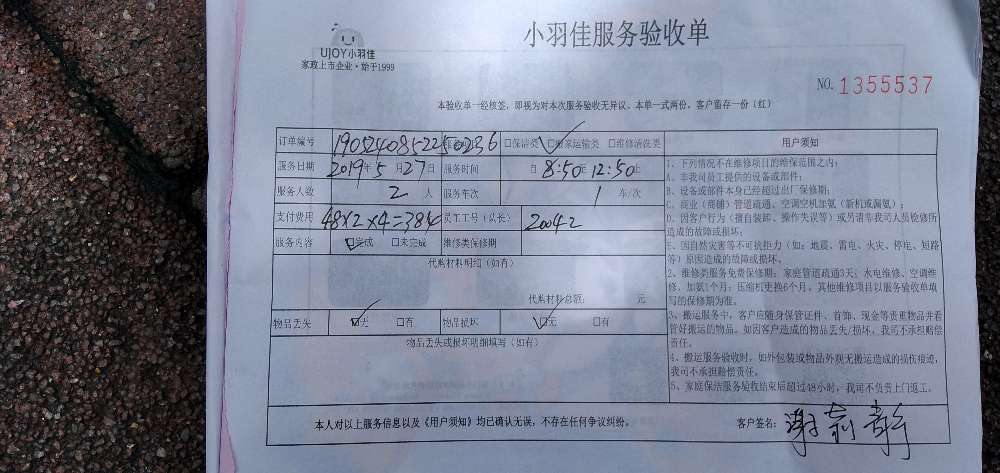 小羽佳服务验收单
UJOY小羽佳
家政上市企业·始于1999
NO. 1355537
本验收单一经核签，即视为对本次服务验收无异议。本单一式两份，客户留存一份（红）
订单编号 1905240852250236 □保洁类 □搬家运输类 □维修清洗类 用户须知
服务日期 2019年5月27日 服务时间 自 8:50至 12:50止
服务人数 2 人 服务车次 1 车/次
支付费用 48×2×4=384 员工工号（队长） 20042
服务内容 □完成 □未完成 维修类保修期
代购材料明细（如有）
代购材料总额： 元
物品丢失 □无 □有 物品损坏 □无 □有
物品丢失或损坏明细填写（如有）
1、下列情况不在维修项目的维保范围之内：
A、非我司员工提供的设备或部件；
B、设备或部件本身已经超过出厂保修期；
C、商业（商铺）管道疏通、空调空机加氨（新机或漏氨）；
D、因客户行为（擅自装卸、操作失误等）或另请非我司人员检修所
造成的故障或损坏；
E、因自然灾害等不可抗拒力（如：地震、雷电、火灾、停电、短路
等）原因造成的故障或损坏。
2、维修类服务免费保修期：家庭管道疏通3天；水电维修、空调维
修、加氨1个月；压缩机更换6个月。其他维修项目以服务验收单填
写的保修期为准。
3、搬运服务中，客户应随身保管证件、首饰、现金等贵重物品并看
管好搬运的物品，如因客户造成的物品丢失/损坏，我司不承担赔偿
责任。
4、搬运服务验收时，如外包装或物品外观无搬运造成的损伤痕迹，
我司不承担赔偿责任。
5、家庭保洁服务验收结束后超过48小时，我司不负责上门返工。
本人对以上服务信息以及《用户须知》均已确认无误，不存在任何争议纠纷。 客户签名：